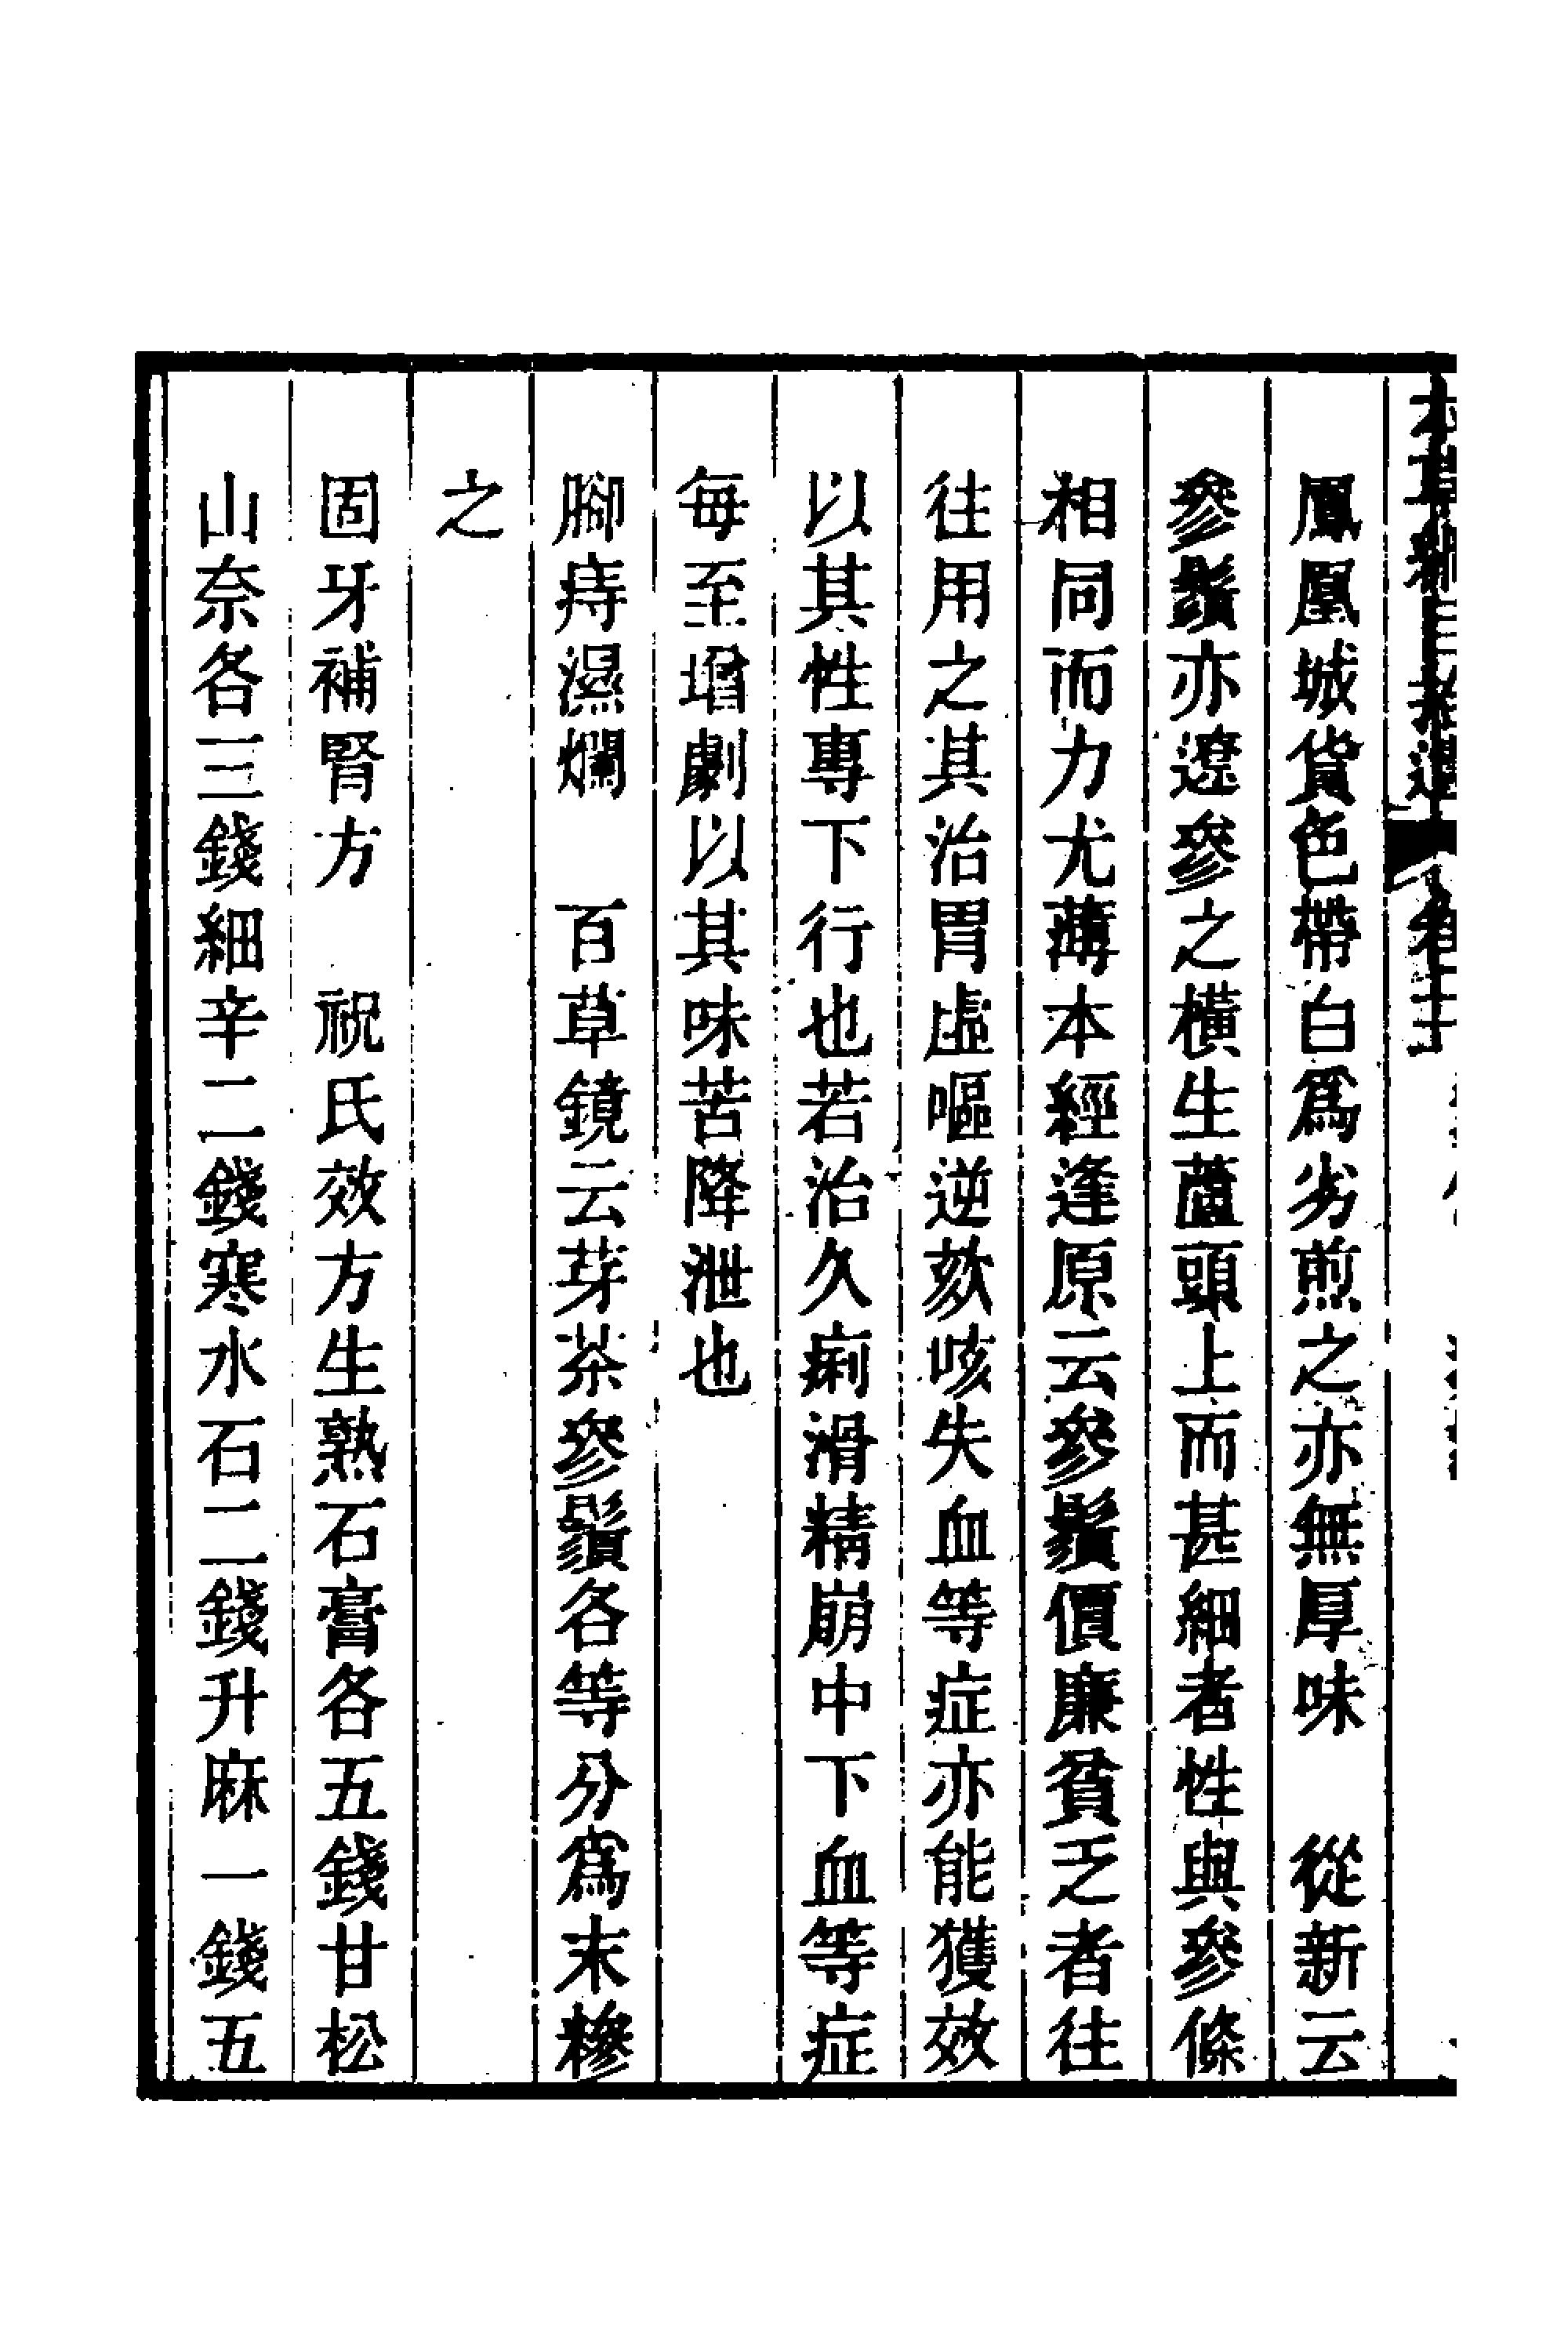 鳳凰城貨色帶白爲劣煎之亦無厚味　從新云
參鬚亦遼參之橫生蘆頭上而甚細者性與參條
相同而力尤薄本經逢原云參鬚價廉貧乏者往
往用之其治胃虛嘔逆欬咳失血等症亦能獲效
以其性專下行也若治久痢滑精崩中下血等症
每至增劇以其味苦降泄也
腳痔濕爛　百草鏡云芽茶參鬚各等分爲末糝
之
固牙補腎方　祝氏效方生熟石膏各五錢甘松
山奈各三錢細辛二錢寒水石二錢升麻一錢五